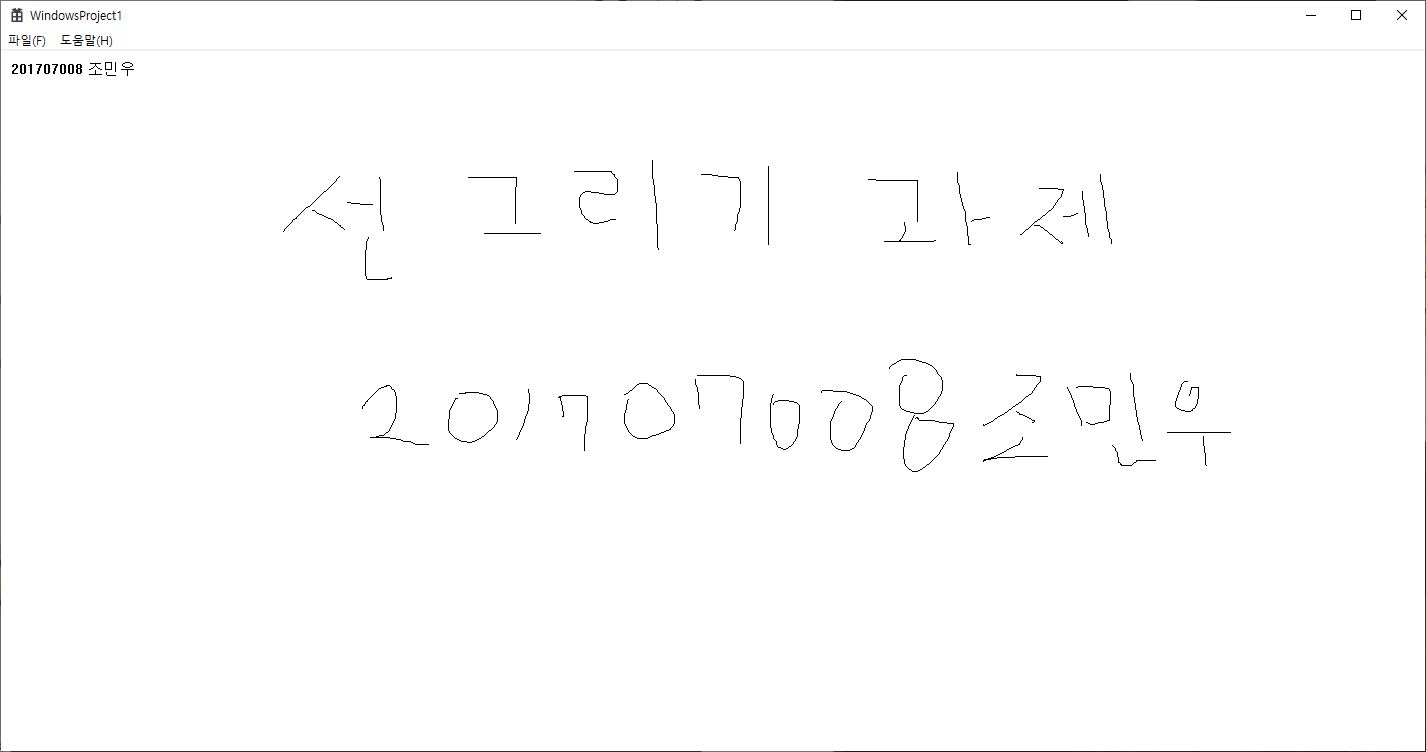 WindowsProject1
파일(F) 도움말(H)
201707008 조민우
선 그리기 과제
201707008조민우